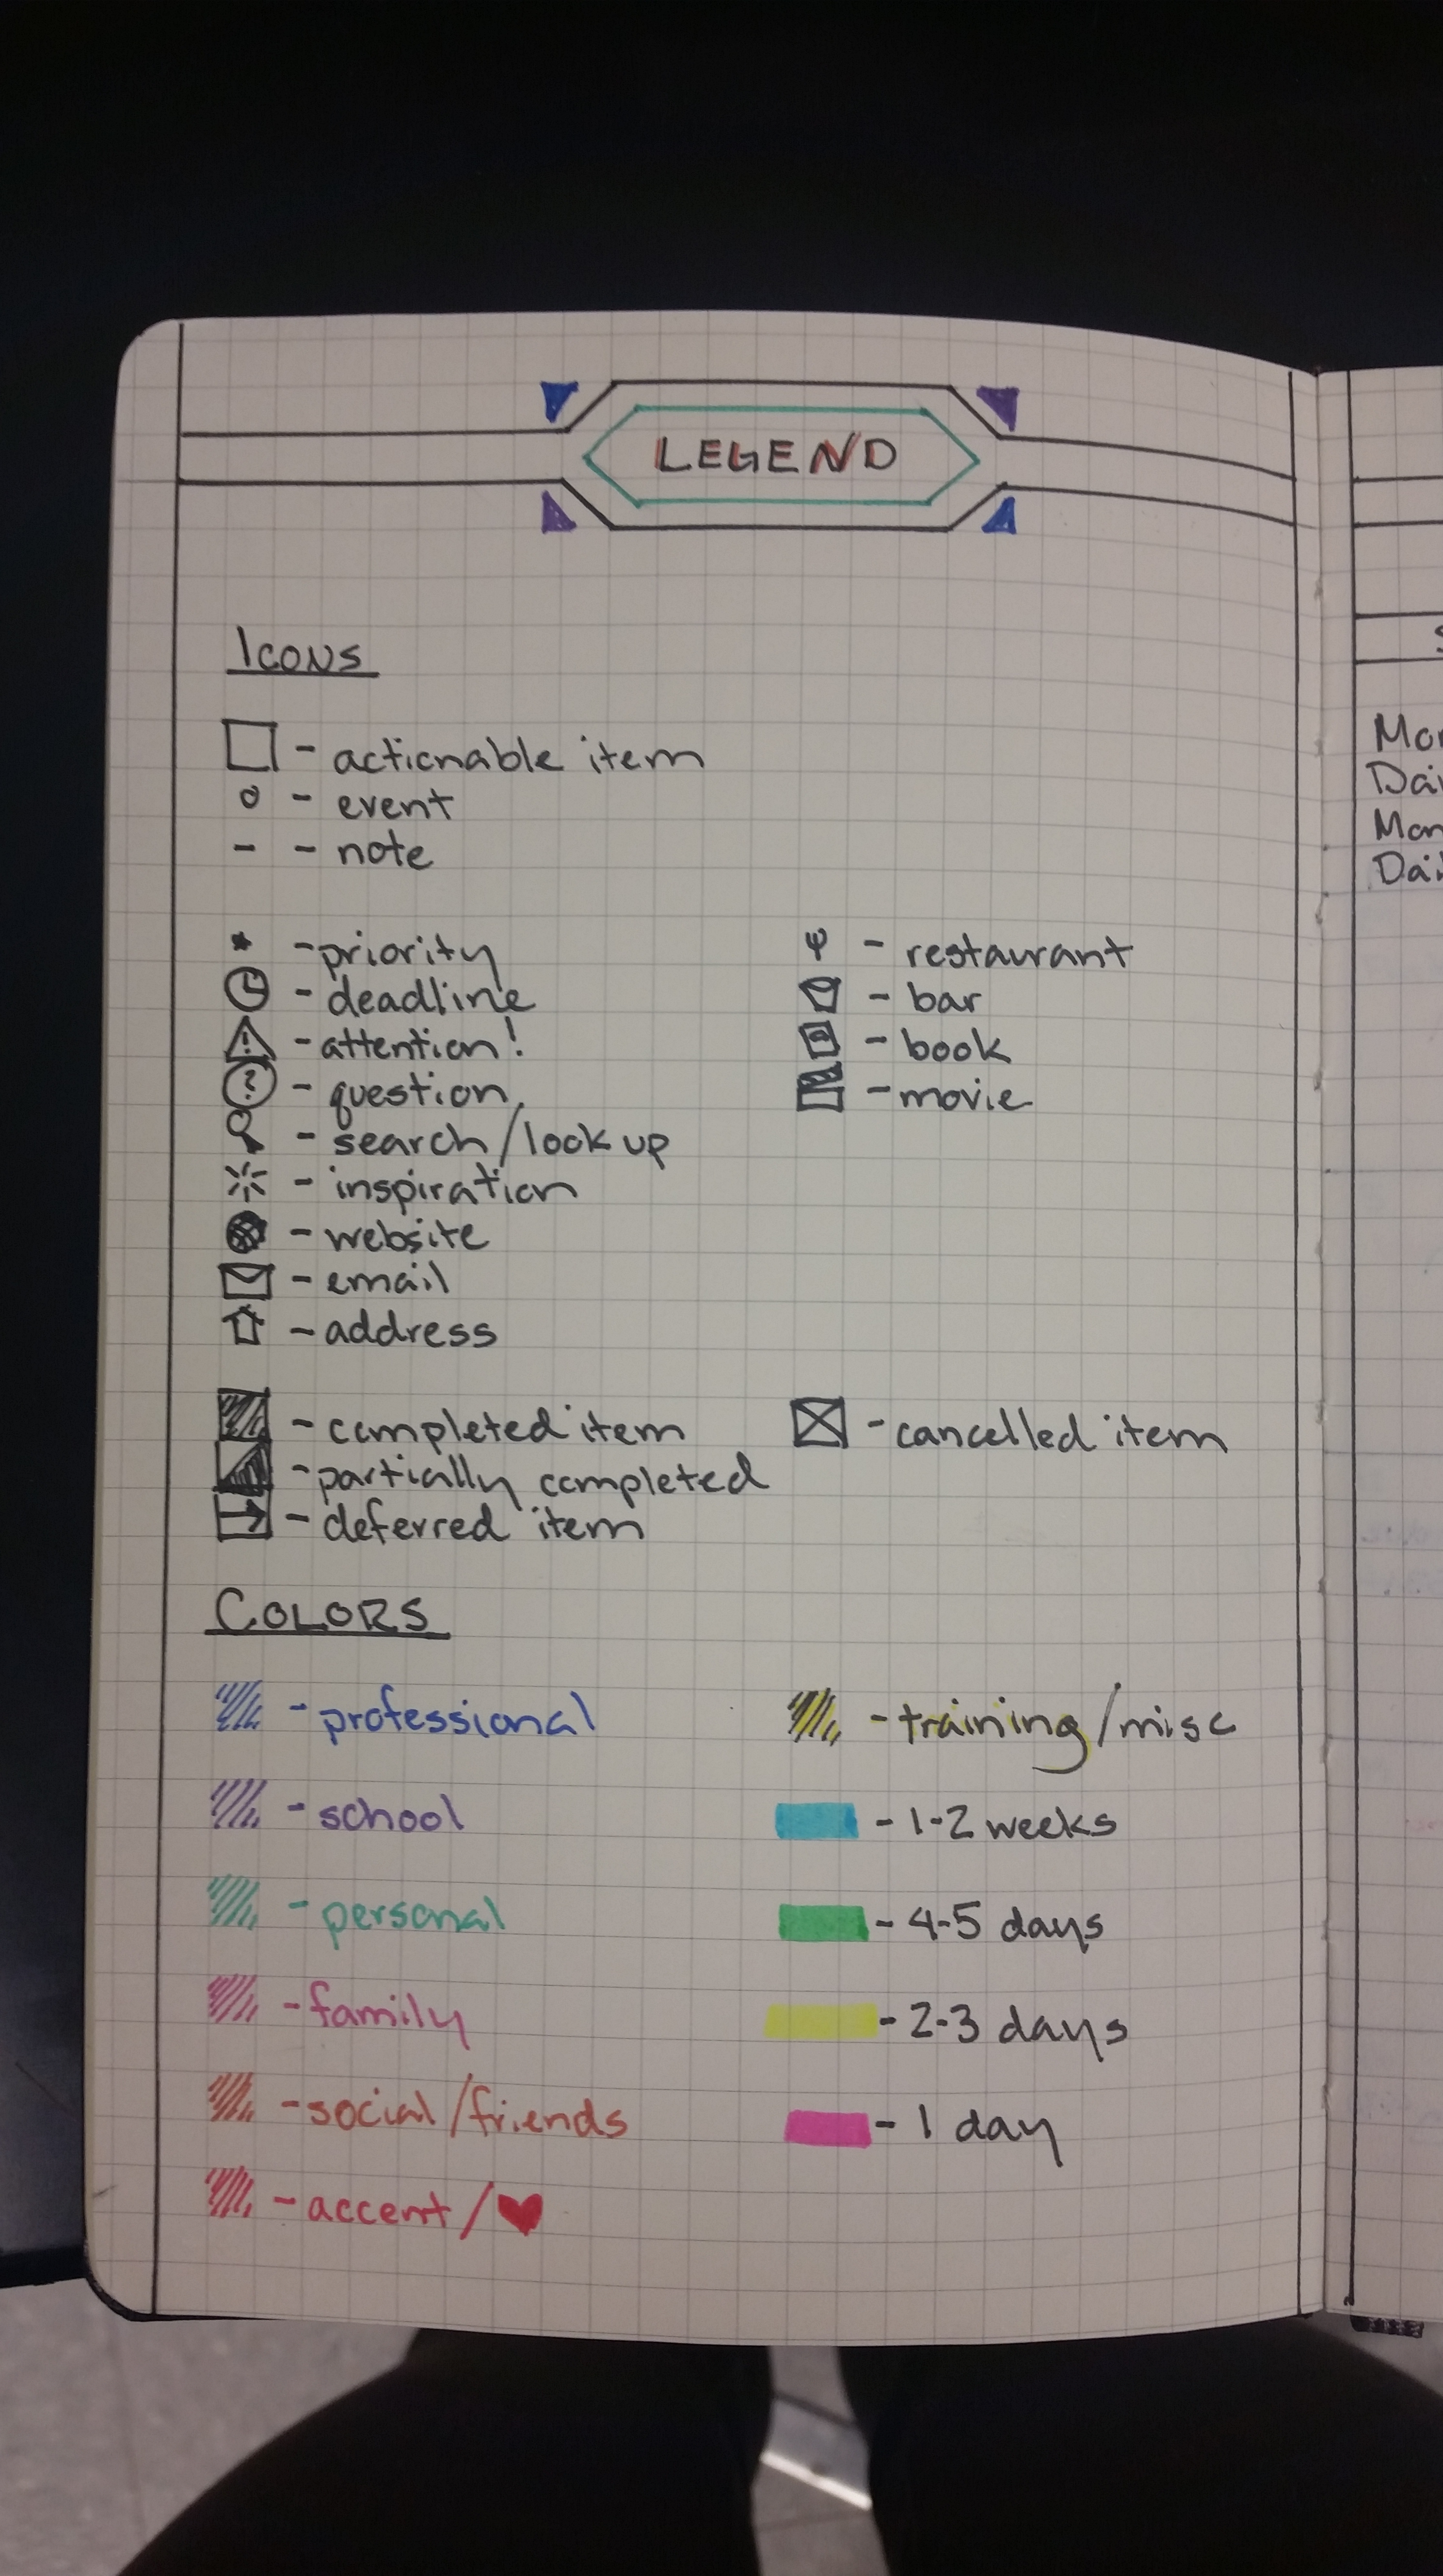 LEGEND
Icons
- actionable item
- event
- note
- priority
- deadline
- attention!
- question
- search/look up
- inspiration
- website
- email
- address
- restaurant
- bar
- book
- movie
- completed item
- partially completed
- deferred item
- cancelled item
COLORS
- professional
- school
- personal
- family
- social/friends
- accent/♥
- training/misc
- 1-2 weeks
- 4-5 days
- 2-3 days
- 1 day